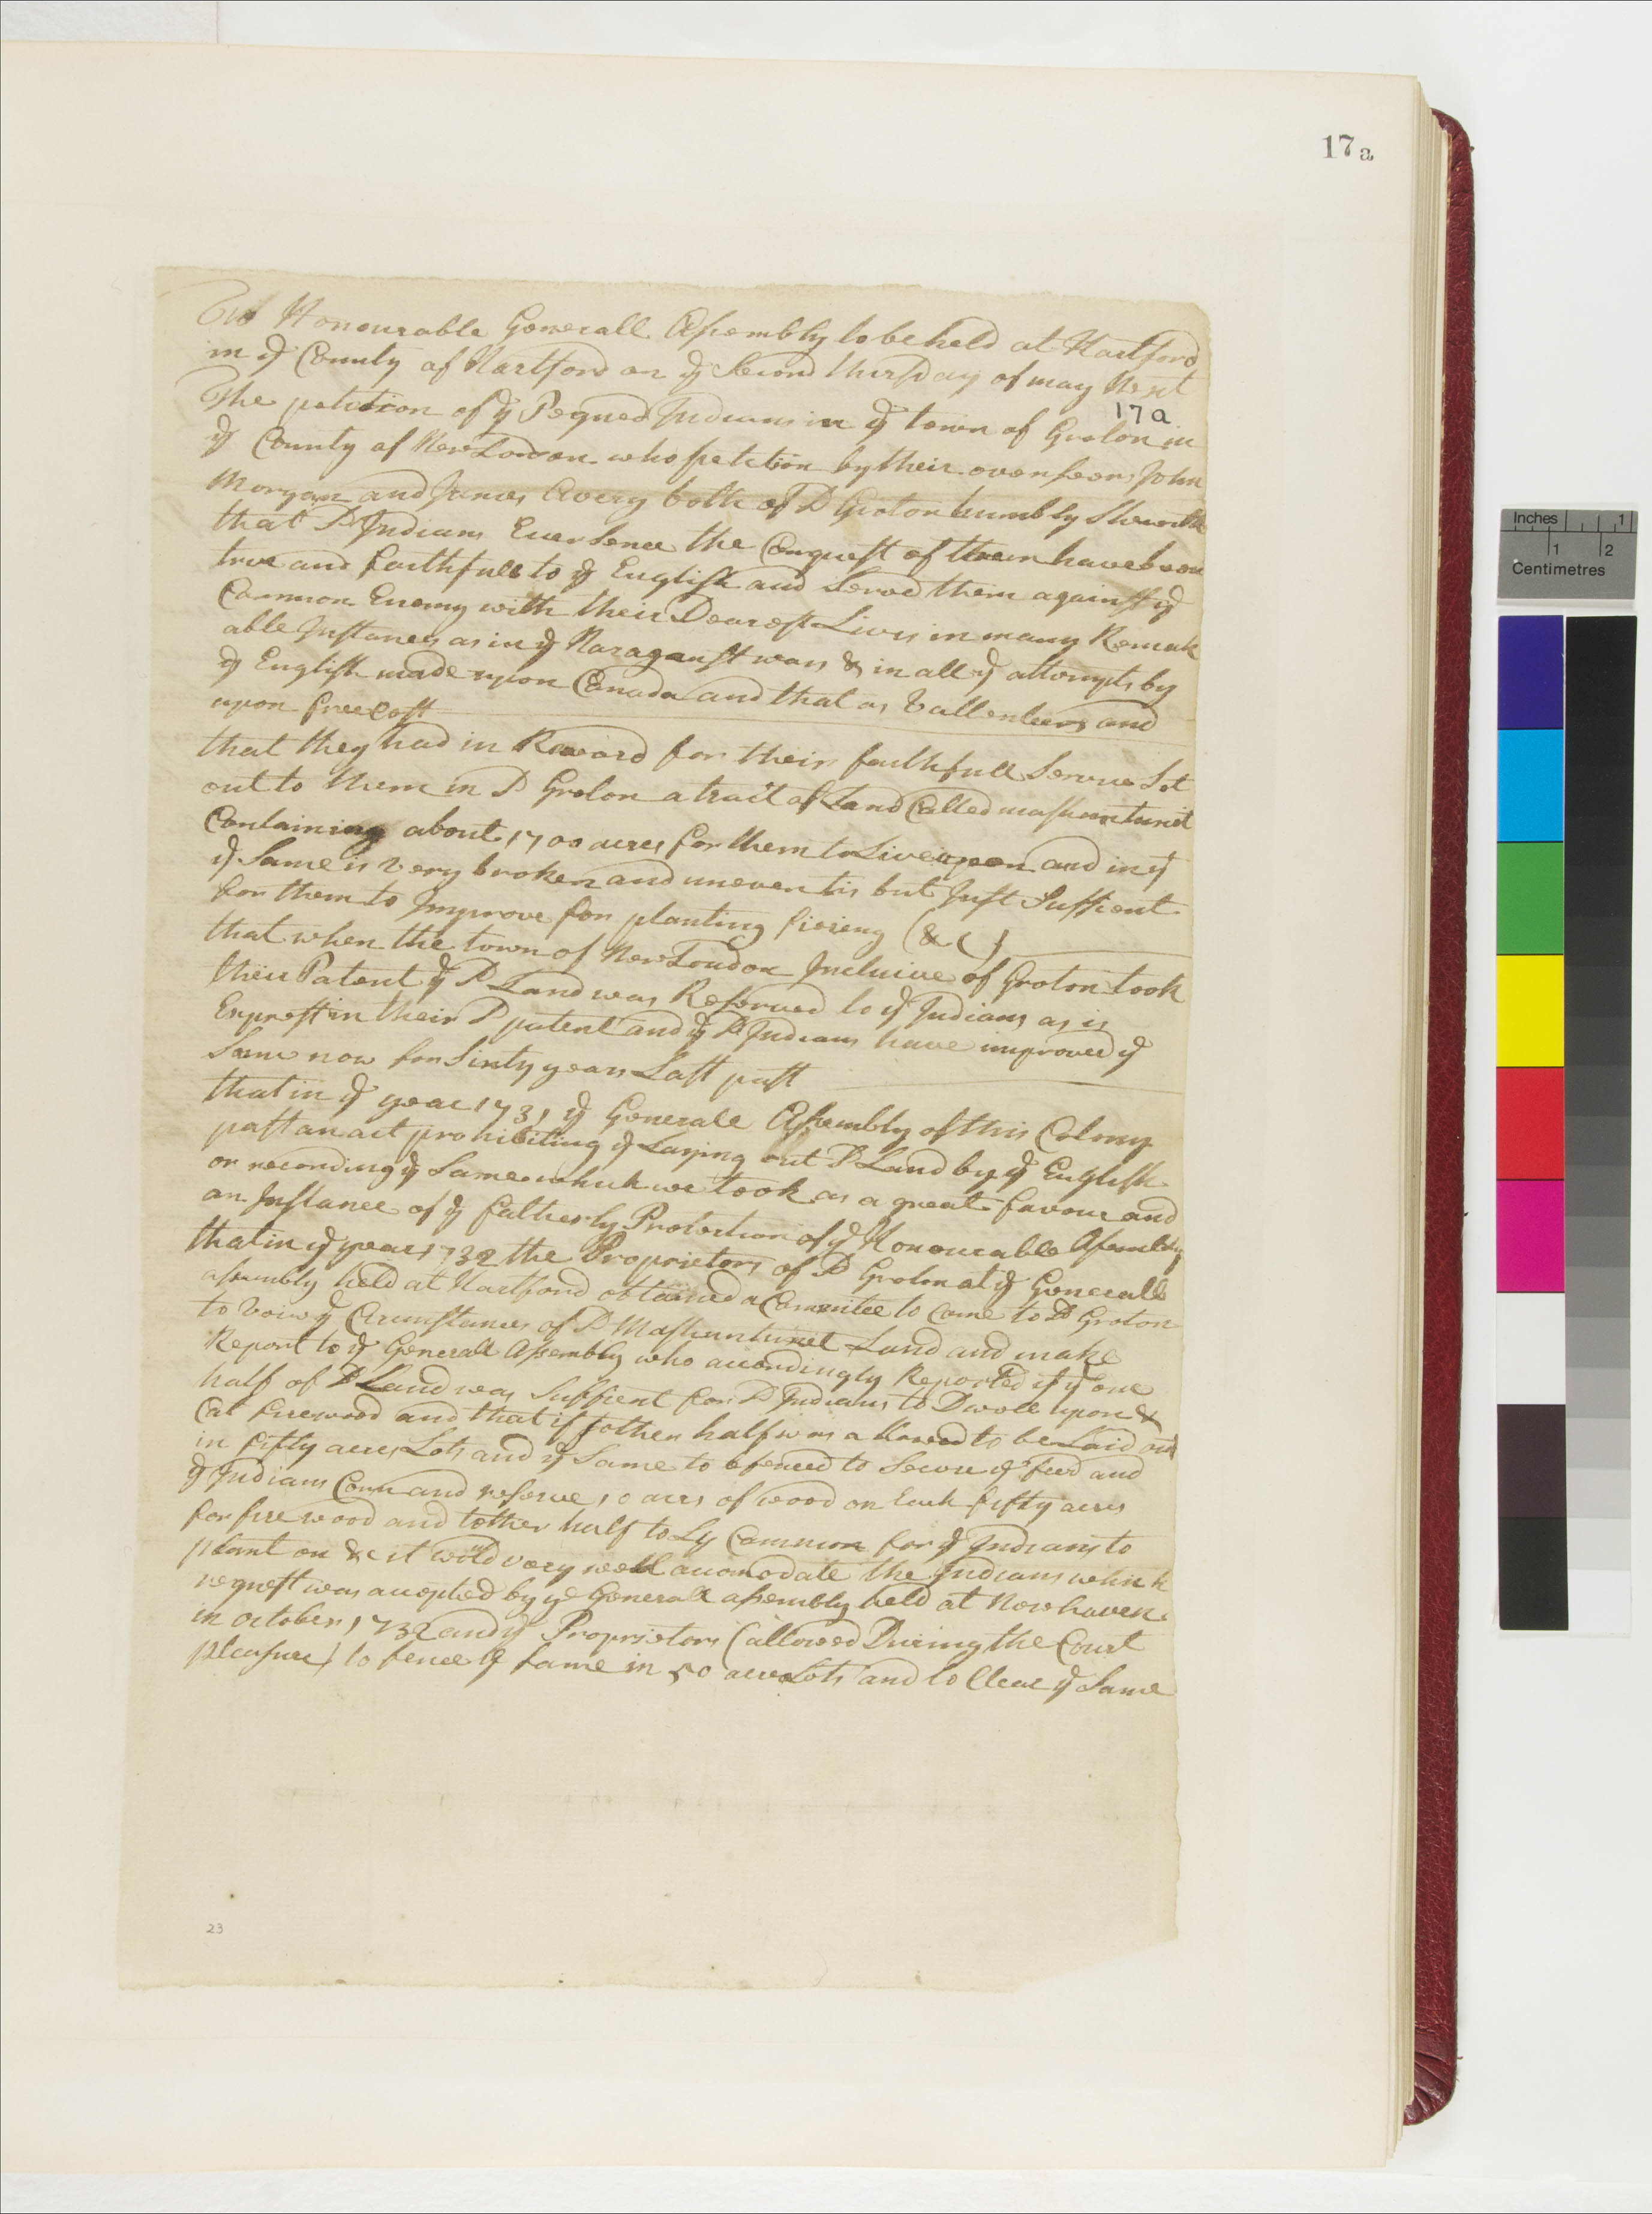 17a
To ye Honourable Generall Assembly to be held at Hartford
in ye County of Hartford on ye Second thursday of may Next
17a
The petition of ye Pequed Indians in ye town of Groton in
ye County of New London who petition by their overseers John
Morgan and James Avery both of sd Groton humbly Sheweth
that sd Indians Ever Sence the Conquest of them have been
true and faithfull to ye English and Served them against ye
Common Enemy with their Dearest Lives in many Remark
able Instances as in ye Naraganst wars & in all ye attempts by
ye English made upon Canada and that as Vallenteers and
upon free Cost
that they had in Reward for their faithfull Servise Set
out to them in sd Groton a tract of Land Called mashuntuxit
Containing about 1700 acres for them to Live upon and in yt
ye Same is Very broken and uneven tis but Just Suffient
for them to Improve for planting fiering (&c)
that when the town of New London Inclusive of Groton took
their Patent ye sd Land was Reserved to ye Indians as is
Exprest in their sd patent and ye sd Indians have improved ye
Same now for Sixty years Last past
that in ye year 1731 ye Generale Assembly of this Colony
past an act prohibiting ye Laying out sd Land by ye English
or recording ye Same which we took as a great favour and
an Instance of ye fatherly Protection of ye Honourable Assembly
that in ye year 1732 the Proprietors of sd Groton at ye Generall
assembly held at Hartford obtained a Commitee to Come to sd Groton
to Voiw ye Circumstances of sd Mashuntuxet Land and make
Report to ye Generall Assembly who accordingly Reported yt ye one
half of sd Land was Suffient for sd Indians to Dwole upon &
Cut firewood and that if tother half was allowed to be Laid out
in fifty acres Lots and ye Same to be fenced to Secure ye feed and
ye Indians Corn and reserve 10 acres of wood on Each fifty acres
for fire wood and tother half to Ly Common for ye Indians to
plant on &c it would very well acomodate the Indians which
request was accepted by ye Generall assembly held at Newhaven
in october 1732 and ye Proprietors (allowed During the Court
pleasure) to fence ye same in 50 acre Lots and to Clear ye Same
23
Inches 1
1 2
Centimetres